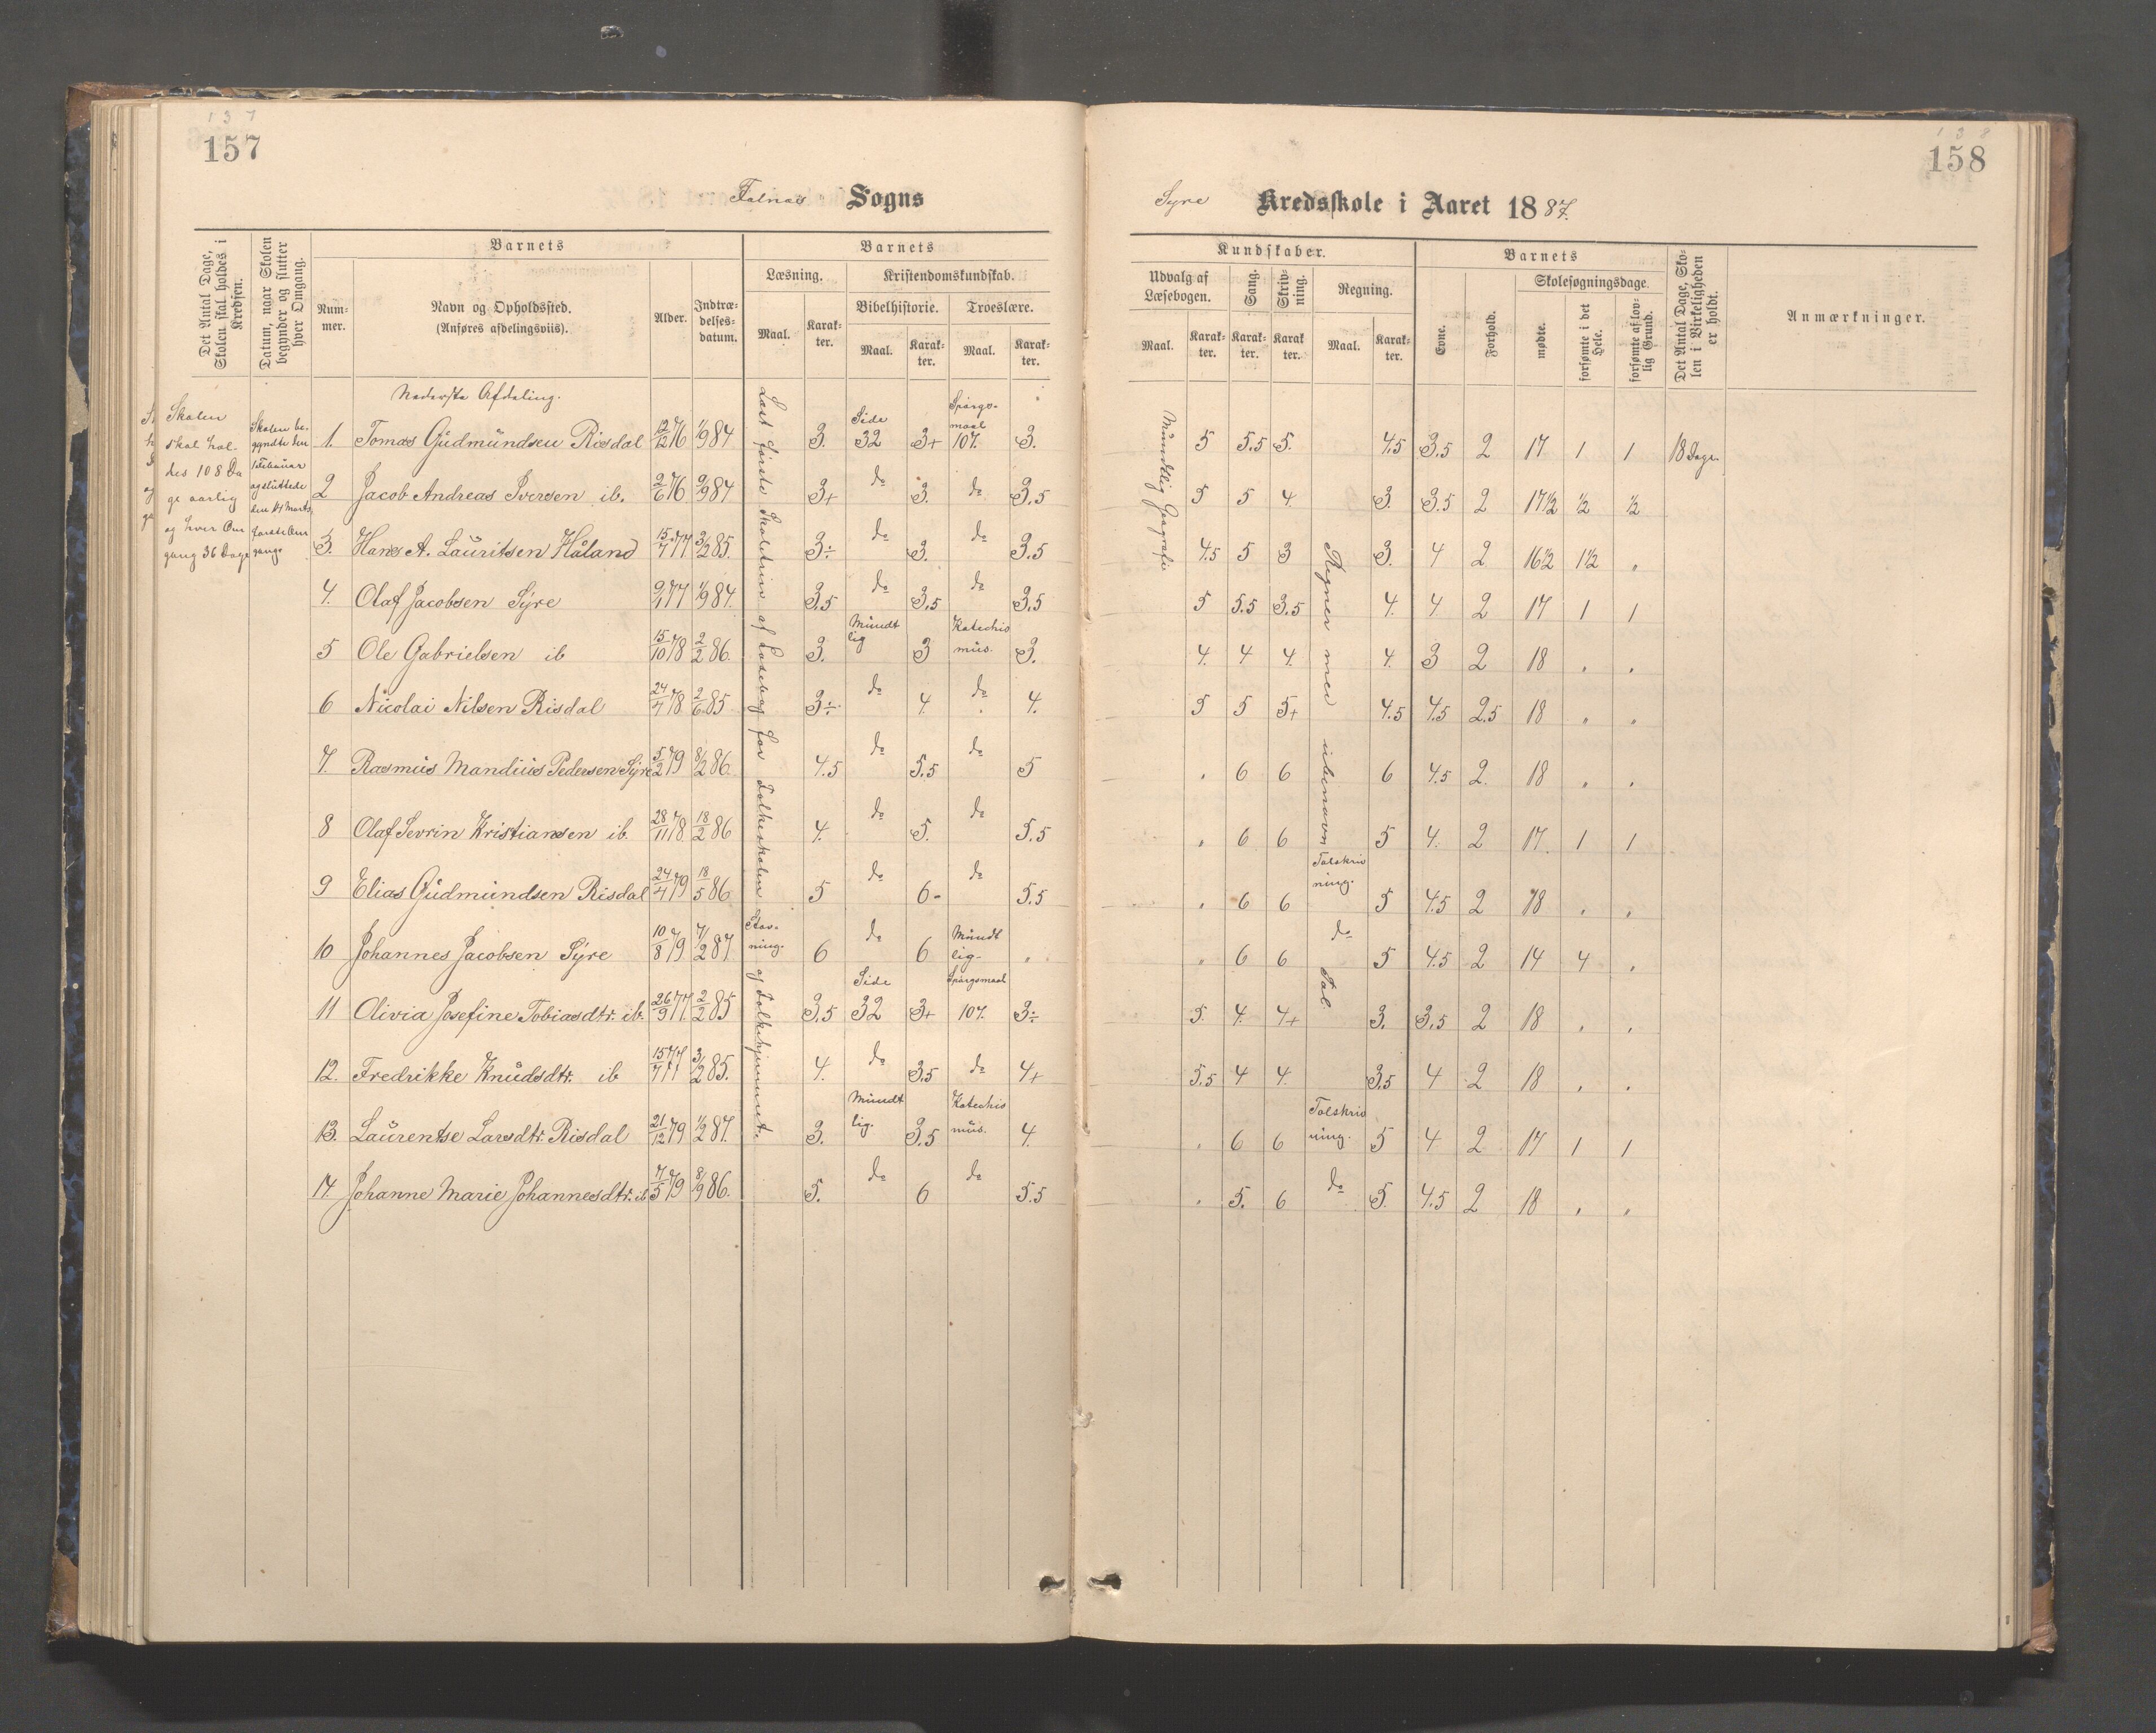 137
157
Falnæs Sogns
Det Antal Dage, Skolen skal holdes i Kredsen.
Datum, naar Skolen begynder og slutter hver Omgang.
Barnets
Nummer.
Navn og Opholdssted.
(Anføres afdelingsviis).
Alder.
Indtrædelsesdatum.
Barnets
Læsning.
Maal.
Karakter.
Kristendomskundskab.
Bibelhistorie.
Maal.
Karakter.
Troeslære.
Maal.
Karakter.
Skolen
skal hol-
des 108 Da
ge aarlig
og hver Om
gang 36 Dage
Skolen be-
gyndte den
1 Februar
og sluttede
den 14 Marts,
første Om
gang.
Nederste Afdeling.
Læst første Skoletrin af Læsebog for Folkeskolen og Folkehjemmet.
1. Tomas Gudmundsen Risdal 12/12 76 1/9 84 3. Side 32 3+ Spörgsmaal 107. 3.
2 Jacob Andreas Iversen ib. 2/6 76 9/9 84 3+ do 3. do 3.5
3. Hans A. Lauritsen Håland 15/7 77 3/2 85. 3÷ do 3. do 3.5
4. Olaf Jacobsen Syre 9/1 77 1/9 84. 3.5 do 3.5 do 3.5
5 Ole Gabrielsen ib 15/10 78 2/2 86. 3. Mundtlig 3 Katechismus. 3.
6 Nicolai Nilsen Risdal 24/7 78 2/6 85 3÷ do 4. do 4.
7. Rasmus Mandius Pedersen Syre 5/2 79 8/2 86. 4.5 do 5.5 do 5
8 Olaf Sevrin Kristiansen ib. 28/11 78 18/2 86 4. do 5. do 5.5
9 Elias Gudmundsen Risdal 24/7 79 18/5 86 5 do 6- do 5.5
10 Johannes Jacobsen Syre 10/8 79 7/2 87. Stavning. 6 do 6 Mundtlig- "
11 Olivia Josefine Tobiasdtr. ib. 26/9 77. 2/2 85 3.5 Side 32 3+ Spörgsmaal 107. 3÷
12. Fredrikke Knudsdtr. ib 15/7 77 3/2 85. 4. do 3.5 do 4+
13. Laurentse Larsdtr. Risdal 21/12 79 1/2 87. 3. Mundtlig. 3.5 Katechismus. 4.
14. Johanne Marie Johannesdtr. ib 7/5 79 8/9 86. 5. do 6 do 5.5
138
158
Syre Kredsskole i Aaret 1887.
Kundskaber.
Udvalg af Læsebogen.
Maal.
Karakter.
Sang.
Karakter.
Skrivning.
Karakter.
Regning.
Maal.
Karakter.
Barnets
Evne.
Forhold.
Skolesøgningsdage.
mødte.
forsømte i det Hele.
forsømte af lovlig Grund.
Det Antal Dage, Skolen i Virkeligheden er holdt.
Anmærkninger.
Mundtlig Geografie
Regner med ubenævn Tal.
5 5.5 5. 4.5 3.5 2 17 1 1 18 Dage
5 5 4. 3. 3.5 2 17 1/2 1/2 1/2
4.5 5 3 3. 4 2 16 1/2 1 1/2 "
5 5.5 3.5 4. 4 2 17 1 1
4. 4 4. 4. 3 2 18 " "
5 5 5+ 4.5 4.5 2.5 18 " "
" 6 6 6 4.5 2. 18 " "
" 6 6 5 4. 2 17. 1 1
" 6 6 Talskrivning. 5 4.5 2 18 " "
" 6 6 do 5 4.5 2 14 4 "
5. 4. 4+ 3. 3.5 2 18 " "
5.5 4 4. 3.5 4 2 18 " "
" 6 6 Talskrivning. 5 4 2 17 1 1
" 5. 6 do 5. 4.5 2 18 " "